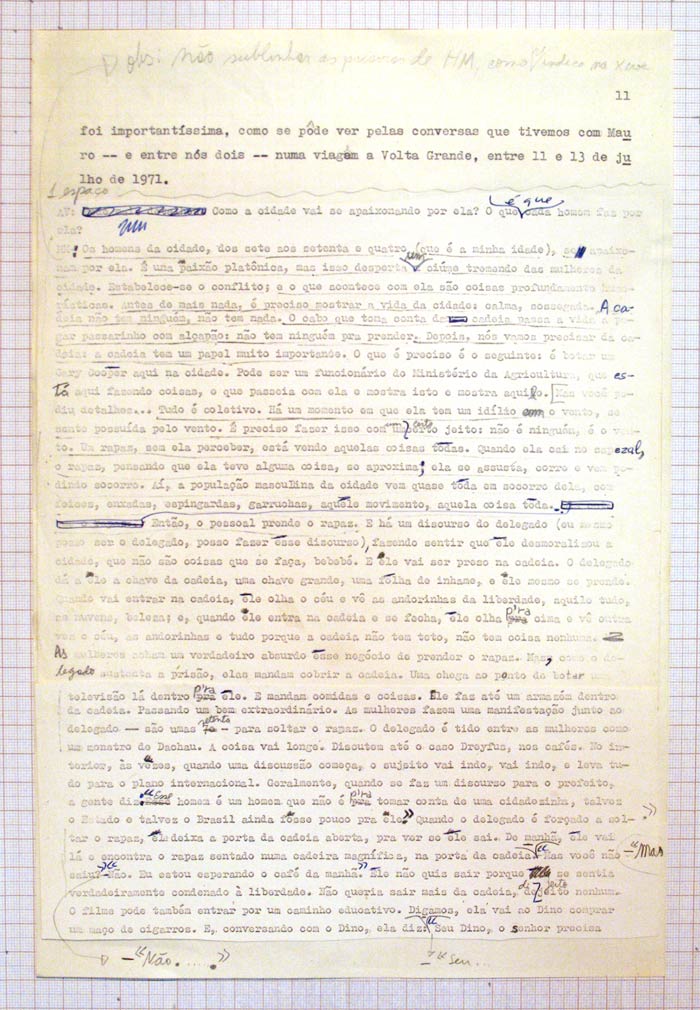 obs: não sublinhar as palavras de HM, como indico na xerox
11
foi importantíssima, como se pôde ver pelas conversas que tivemos com Mau
ro -- e entre nós dois -- numa viagem a Volta Grande, entre 11 e 13 de ju
lho de 1971.
1 espaço
AV: Como a cidade vai se apaixonando por ela? O que é que cada homem faz por
ela?
HM: Os homens da cidade, dos sete aos setenta e quatro (que é a minha idade), se apaixo-
nam por ela. É uma paixão platônica, mas isso desperta um ciúme tremendo das mulheres da
cidade. Estabelece-se o conflito; e o que acontece com ela são coisas profundamente humo-
rísticas. Antes de mais nada, é preciso mostrar a vida da cidade: calma, sossegada. A ca-
deia não tem ninguém, não tem nada. O cabo que toma conta da cadeia passa a vida a pe-
gar passarinho com alçapão: não tem ninguém pra prender. Depois, nós vamos precisar da ca-
deia: a cadeia tem um papel muito importante. O que é preciso é o seguinte: é botar um
Gary Cooper aqui na cidade. Pode ser um funcionário do Ministério da Agricultura, que es-
tá aqui fazendo coisas, e que passeia com ela e mostra isto e mostra aquilo. Mas você pe-
diu detalhes... Tudo é coletivo. Há um momento em que ela tem um idílio com o vento, se
sente possuída pelo vento. É preciso fazer isso com um certo jeito: não é ninguém, é o ven-
to. Um rapaz, sem ela perceber, está vendo aquelas coisas todas. Quando ela cai no capezal,
o rapaz, pensando que ela teve alguma coisa, se aproxima; ela se assusta, corre e vem pe-
dindo socorro. Aí, a população masculina da cidade vem quase toda em socorro dela, com
foices, enxadas, espingardas, garruchas, aquele movimento, aquela coisa toda.
Então, o pessoal prende o rapaz. E há um discurso do delegado (eu mesmo
posso ser o delegado, posso fazer esse discurso), fazendo sentir que ele desmoralizou a
cidade, que não são coisas que se faça, bebebé. E ele vai ser preso na cadeia. O delegado
dá a ele a chave da cadeia, uma chave grande, uma folha de inhame, e ele mesmo se prende.
Quando vai entrar na cadeia, ele olha o céu e vê as andorinhas da liberdade, aquilo tudo,
as nuvens, beleza; e, quando ele entra na cadeia e se fecha, ele olha p'ra cima e vê outra
vez o céu, as andorinhas e tudo porque a cadeia não tem teto, não tem coisa nenhuma.
As mulheres acham um verdadeiro absurdo esse negócio de prender o rapaz. Mas, como o de-
legado sustenta a prisão, elas mandam cobrir a cadeia. Uma chega ao ponto de botar uma
televisão lá dentro p'ra ele. E mandam comidas e coisas. Ele faz até um armazém dentro
da cadeia. Passando um bem extraordinário. As mulheres fazem uma manifestação junto ao
delegado -- são umas setenta -- para soltar o rapaz. O delegado é tido entre as mulheres como
um monstro de Dachau. A coisa vai longe. Discutem até o caso Dreyfus, nos cafés. No in-
terior, às vêzes, quando uma discussão começa, o sujeito vai indo, vai indo, e leva tu-
do para o plano internacional. Geralmente, quando se faz um discurso para o prefeito,
a gente diz: «Esse homem é um homem que não é p'ra tomar conta de uma cidadezinha, talvez
o Estado e talvez o Brasil ainda fosse pouco pra ele.» Quando o delegado é forçado a sol-
tar o rapaz, ele deixa a porta da cadeia aberta, pra ver se ele sai. De manhã, ele vai
lá e encontra o rapaz sentado numa cadeira magnífica, na porta da cadeia. —«Mas você não
saiu? —«Não. Eu estou esperando o café da manhã.» Ele não quis sair porque se sentia
verdadeiramente condenado à liberdade. Não queria sair mais da cadeia, de jeito nenhum.
O filme pode também entrar por um caminho educativo. Digamos, ela vai ao Dino comprar
um maço de cigarros. E, conversando com o Dino, ela diz: Seu Dino, o senhor precisa
—«Não.....»
—«Seu...